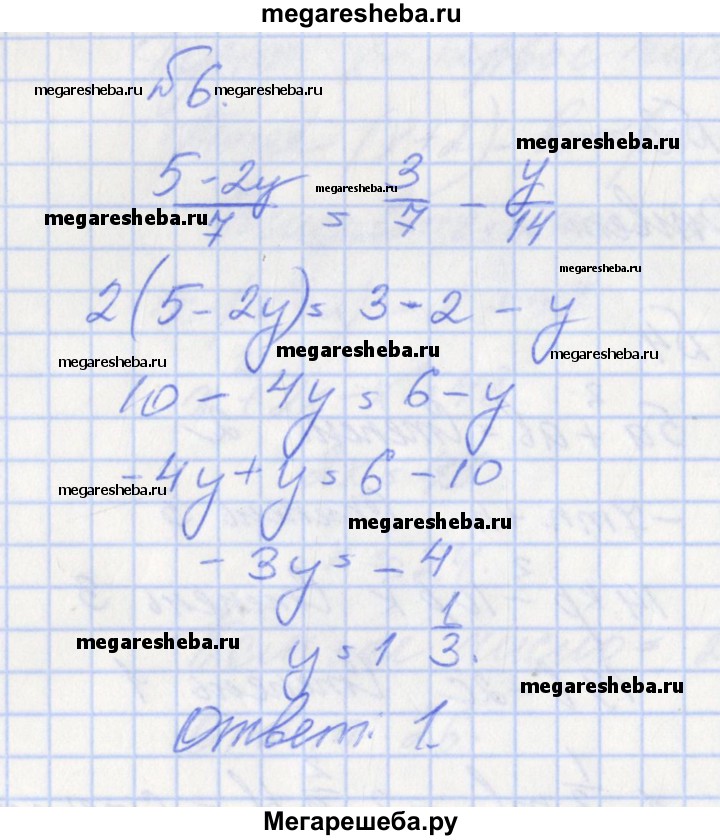 megaresheba.ru
megaresheba.ru №6. megaresheba.ru
megaresheba.ru
(5-2y)/7 = 3/7 - y/14
megaresheba.ru
megaresheba.ru
megaresheba.ru
2(5-2y)= 3·2-y
megaresheba.ru
megaresheba.ru
megaresheba.ru
10-4y=6-y
-4y+y=6-10
megaresheba.ru
megaresheba.ru
-3y=-4
y=1 1/3.
megaresheba.ru
megaresheba.ru
Ответ: 1.
Мегарешеба.ру